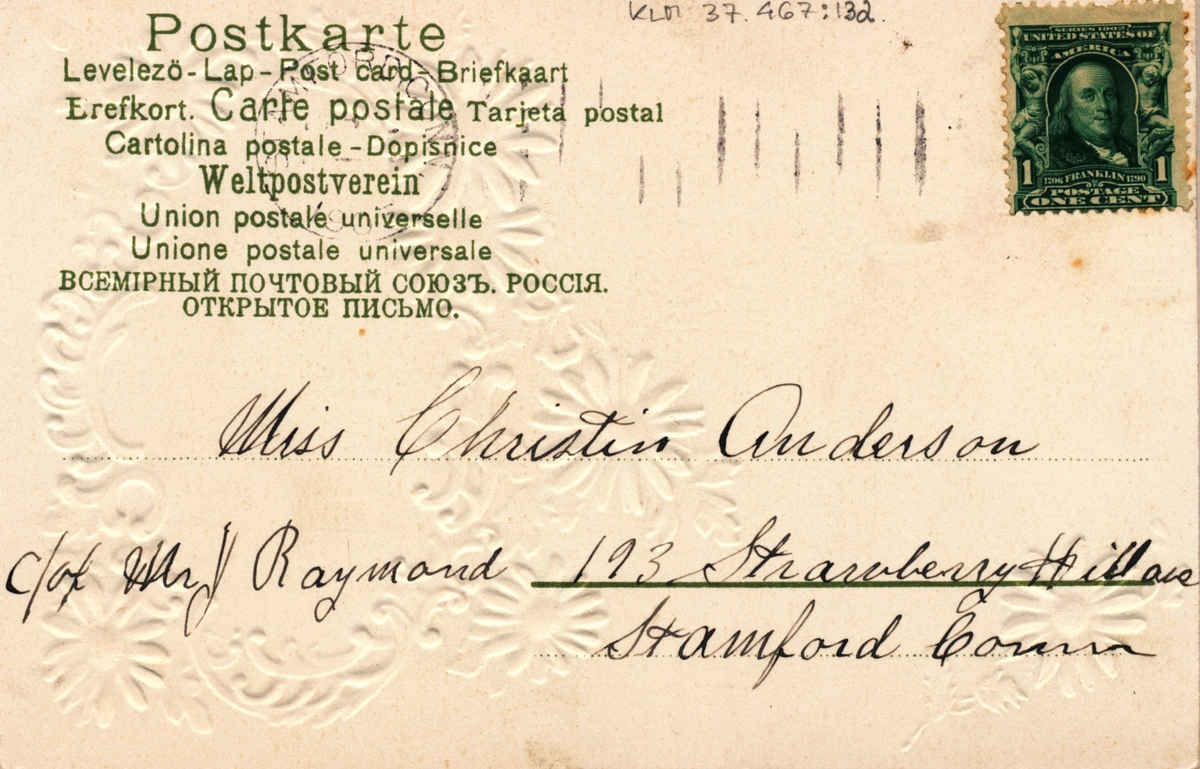 KLM 37.467:132.
Postkarte
Levelező-Lap-Post card-Briefkaart
Brefkort. Carte postale Tarjeta postal
Cartolina postale-Dopisnice
Weltpostverein
Union postale universelle
Unione postale universale
ВСЕМІРНЫЙ ПОЧТОВЫЙ СОЮЗЪ. РОССІЯ.
ОТКРЫТОЕ ПИСЬМО.
SERIES 1902
UNITED STATES OF
AMERICA
1 1706 FRANKLIN 1790 1
POSTAGE
ONE CENT
Miss Christin Anderson
c/of Mr J Raymond 193 Strawberry Hill ave
Stamford Conn